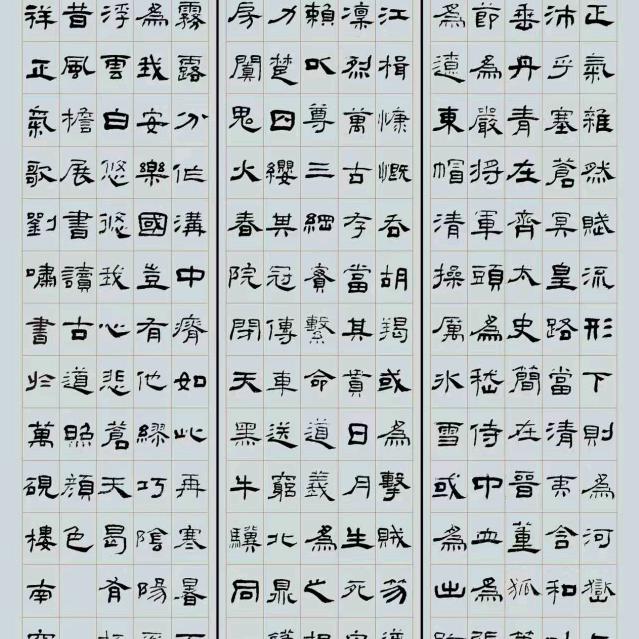 正氣雜然賦流形下則為河嶽
沛乎塞蒼冥皇路當清夷含和
垂丹青在齊太史簡在晉董狐
節為嚴將軍頭為嵇侍中血為
為遼東帽清操厲冰雪或為出
江楫慷慨吞胡羯或為擊賊笏
凜烈萬古存當其貫日月生死
賴以尊三綱實繫命道義為之
力楚囚纓其冠傳車送窮北鼎
房闃鬼火春院閉天黑牛驥同
霧露分作溝中瘠如此再寒暑
為我安樂國豈有他繆巧陰陽
浮雲白悠悠我心悲蒼天曷有
昔風檐展書讀古道照顏色
祥正氣歌劉嘯書於萬硯樓南